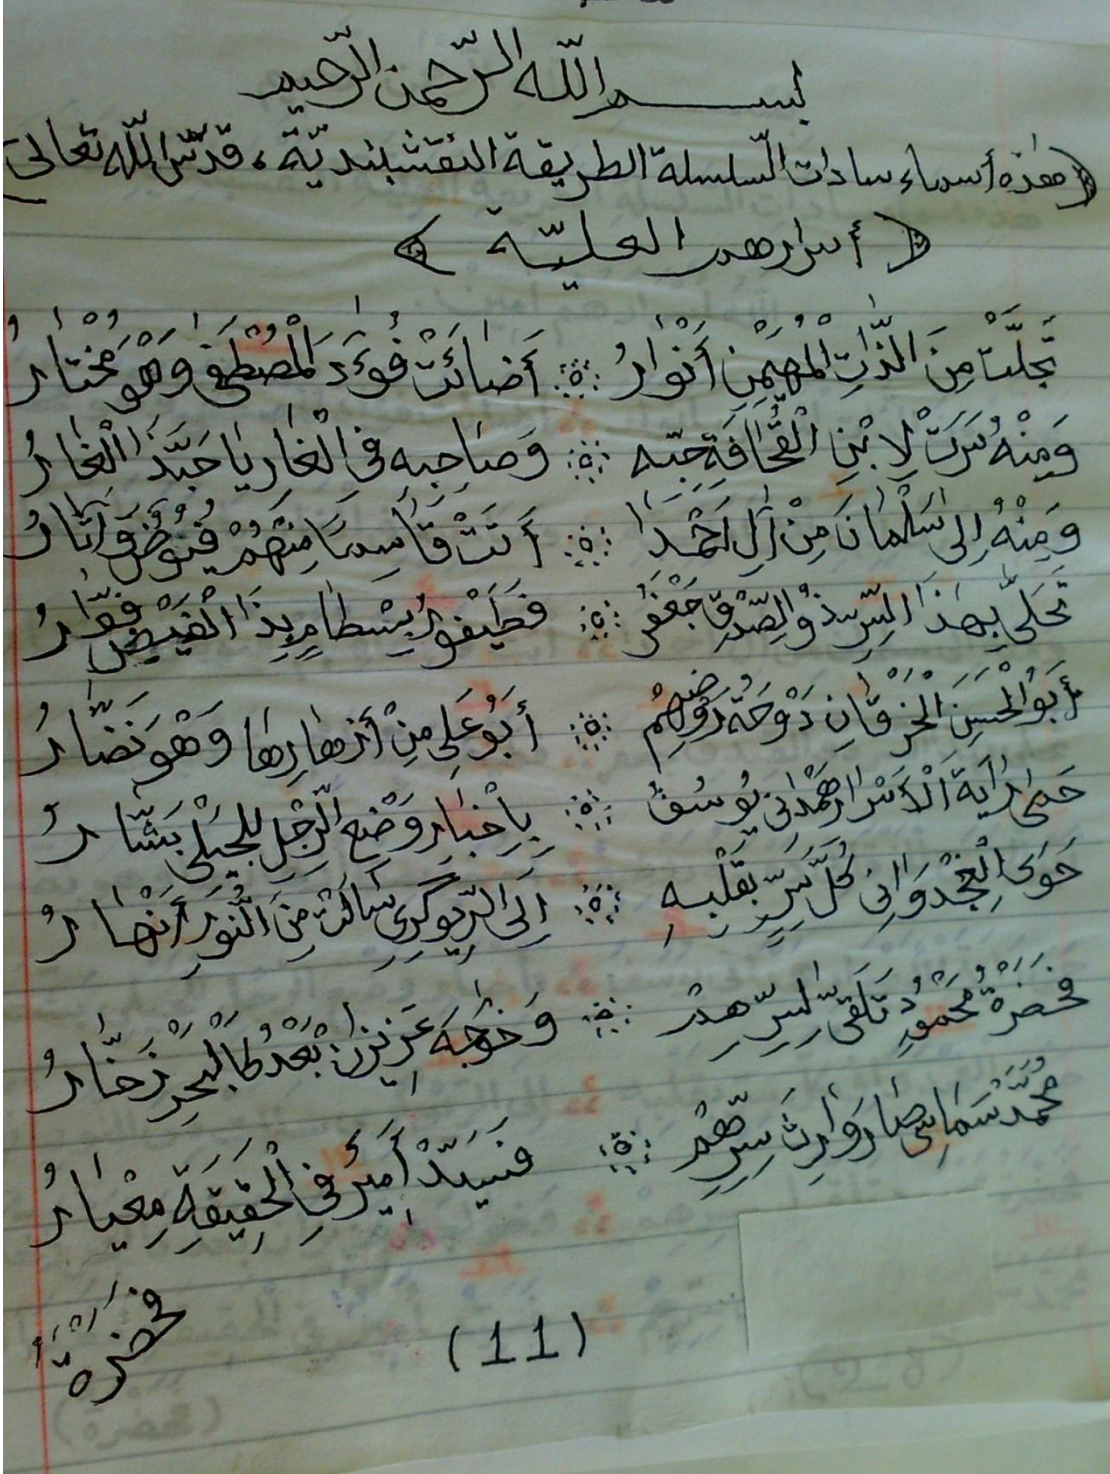 بسم الله الرّحمن الرّحيم
﴿هٰذه أسماء سادات السّلسلة الطريقة النقشبنديّة، قدّس الله تعالى
﴿ أسرارهم العليّة ﴾
تَجَلَّتْ مِنَ الذّٰاتِ الْمُهَيْمِنِ أَنْوٰارُ ؞ أَضٰائَتْ فُوءَدَ الْمُصْطَفىٰ وَهْوَ مُخْتٰارُ
وَمِنْهُ سَرَتْ لِابْنِ الْقُحٰافَةِ حِبّه ؞ وَصٰاحِبه فى الْغٰارِ يٰا حَبَّذَا الْغٰارُ
وَمِنْهُ إِلىٰ سَلْمٰانَ مِنْ اٰلِ اَحْمَدَا ؞ أَتَتْ قَاسِمًا مِنْهُمْ فُيُوضٌ وَآثَارُ
تَحَلّىٰ بِهٰذَا السِّرِّ ذُو الصِّدْقِ جَعْفَرُ ؞ فَطَيْفورُ بِسْطٰامٍ بِذَا الْفَيْضِ فَوّٰارُ
أَبَوُ الْحَسَنِ الْخَرْقٰانِ دَوْحَةُ رَوْضِهِمْ ؞ أَبُو عَلِى مِنْ أَزهٰارِهٰا وَهْوَ نَضّٰارُ
حَمىٰ رٰايَةَ الْأَسْرٰارِ هَمْدٰانِى يُوسُفُ ؞ بِإِخْبٰارِ وَضْعِ الرِّجْلِ لِلجِيْلِى بَشّٰارُ
حَوَى الْغُجْدَوَانِى كُلَّ سِرٍّ بِقَلْبِهِ ؞ اِلَى الرِّيوگَرِى سٰالَتْ مِنَ النُّورِ أَنْهٰارُ
فَحَضْرَةُ مَحْمُودٍ تَلَقّىٰ لِسِرِّهِمْ ؞ وَخٰوجَه عَزِيزٰان بَعْدُ كَالْبَحْرِ زَخّٰارُ
مُحَمَّدْ سَمَاسِى صٰارَ وٰارِثَ سِرِّهِمْ ؞ فَسَيِّدْ أَمِيرٌ فِى الْحَقِيقَةِ مِعْيٰارُ
فَحَضْرَةُ
(11)